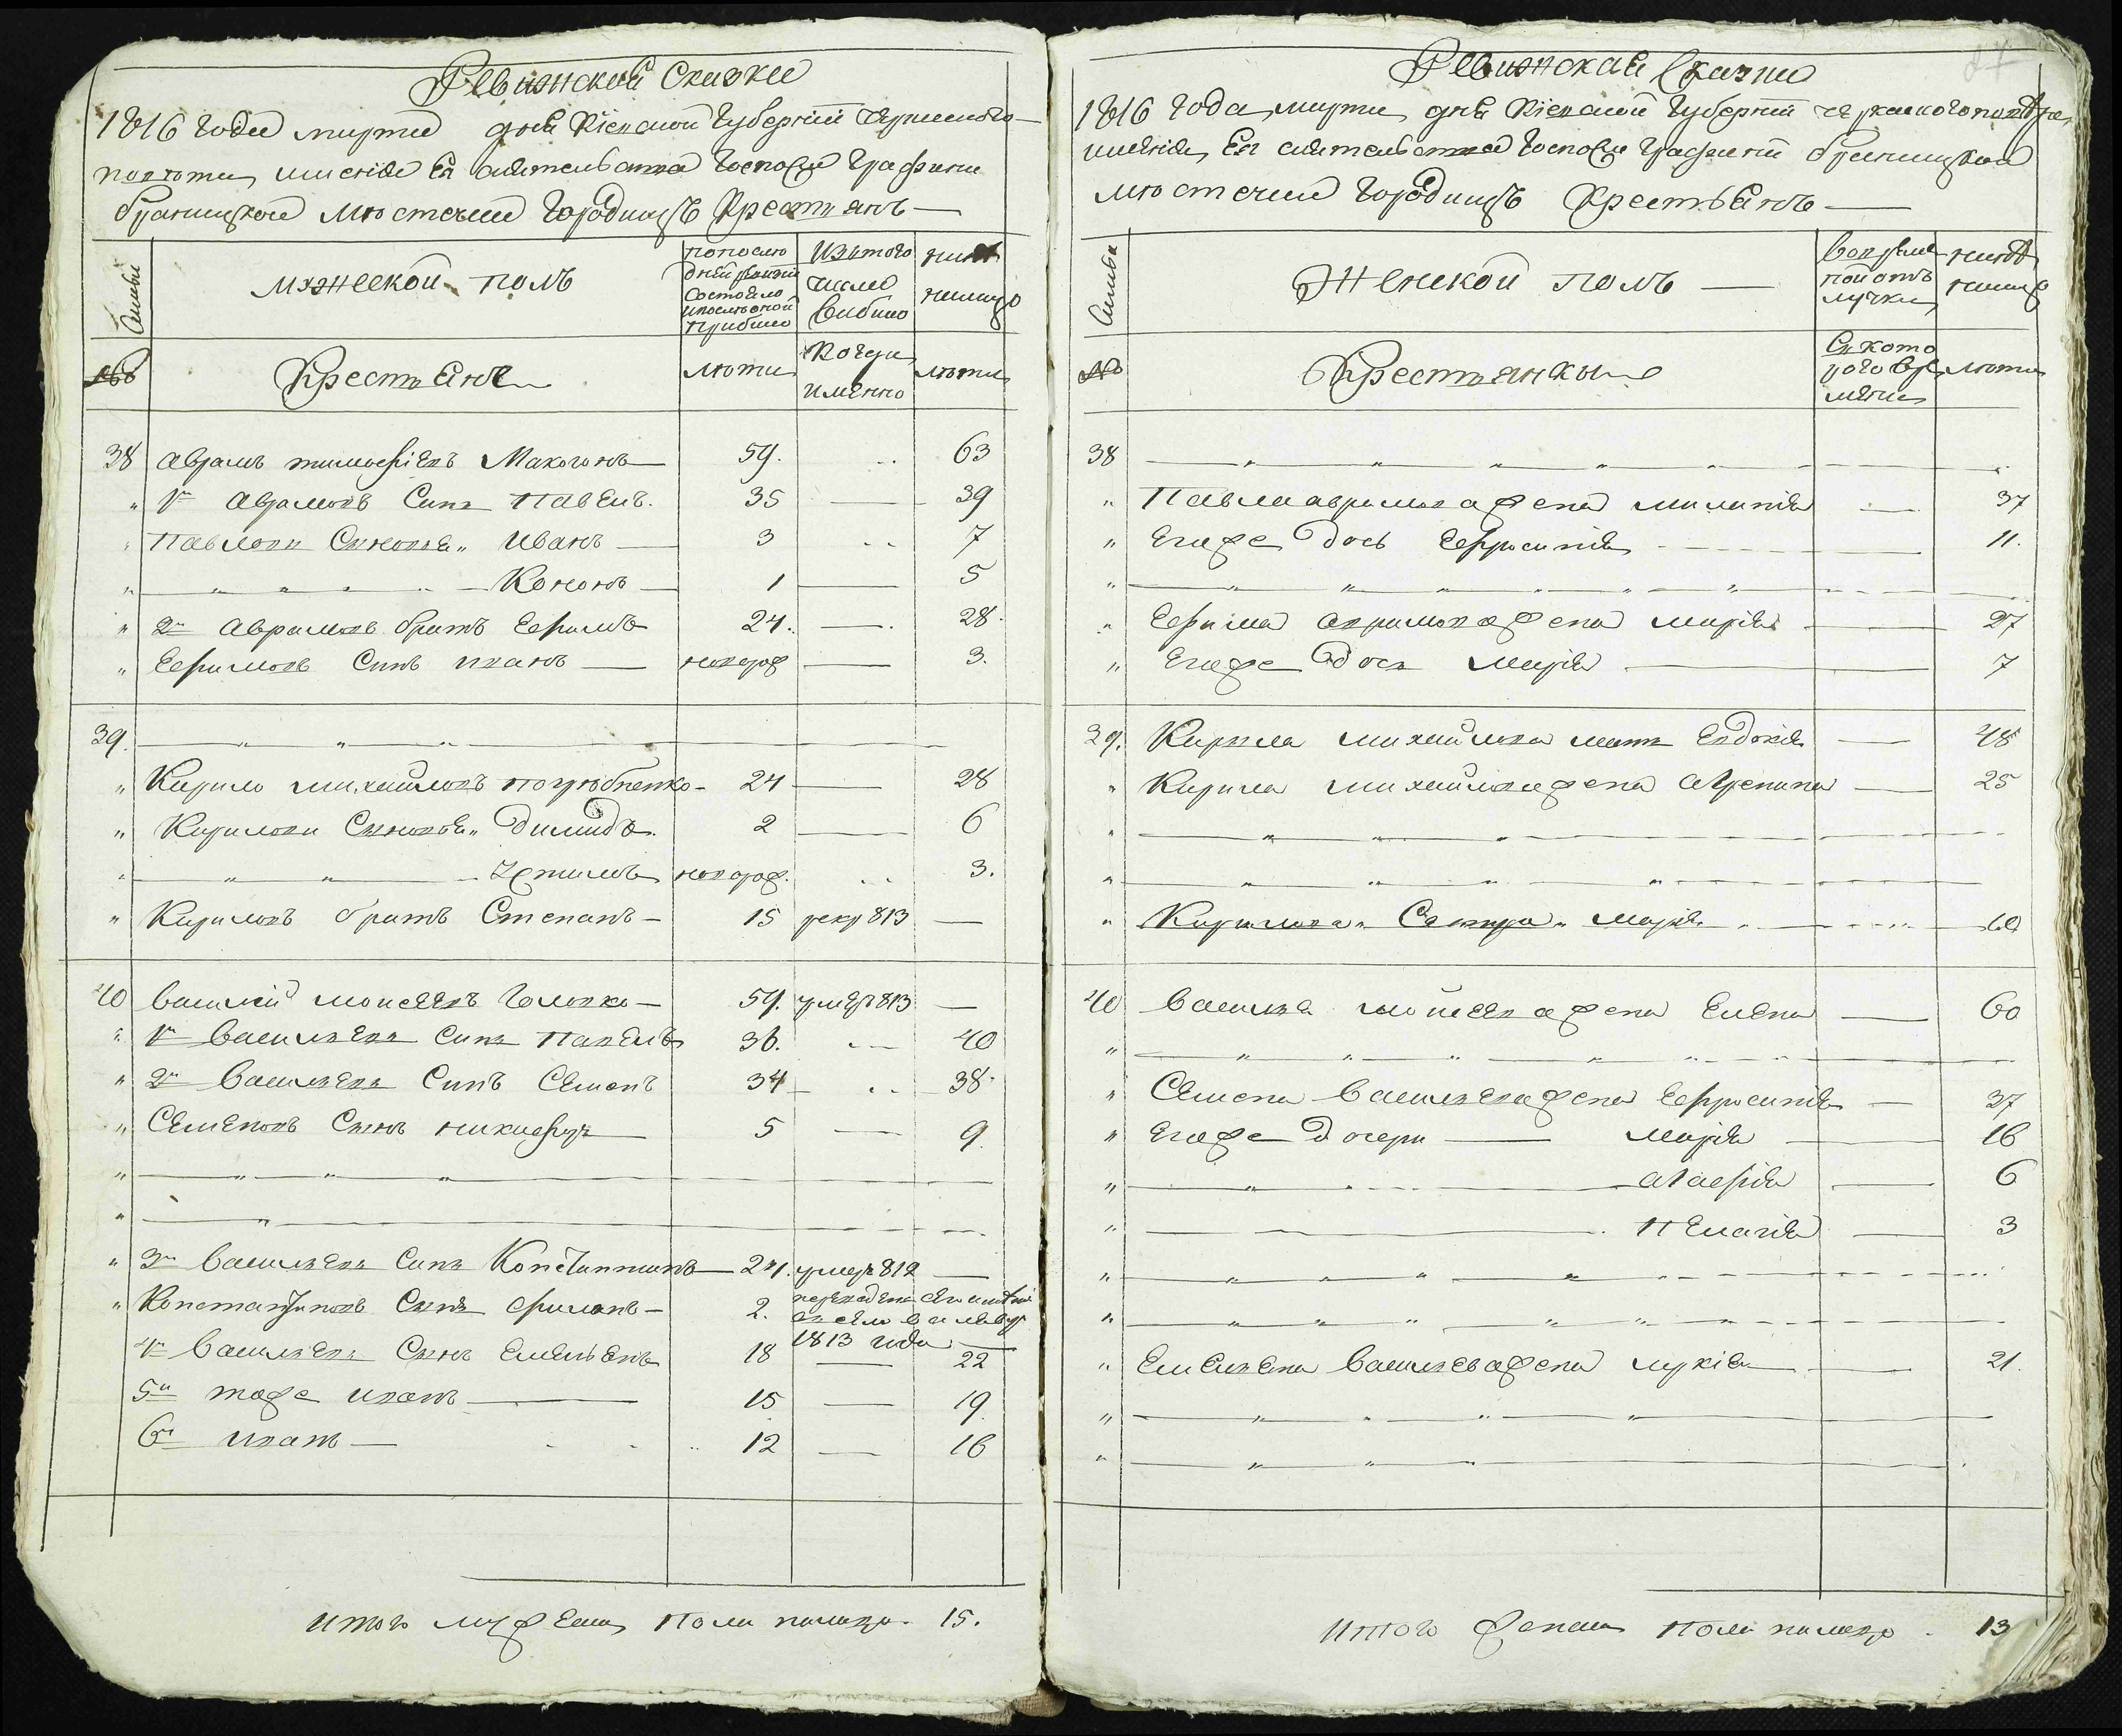 Ревизская Сказка
1816 года марта дня Кіевской Губерніи Черкаского
повѣта имѣнія Ея сіятельства Госпожи Графини
браницкой мѣстечка Городищъ Крестьянъ
Семьи
мужеской полъ
по послѣ
дней ревизіи
состояло
и послѣ оной
прибыло
Изътого
числа
выбыло
нынѣ
налицо
№
Крестьяне
лѣта
Когда
именно
лѣта
38 Аврамъ тимофіевъ Макогонъ 59. 63
" 1й Аврамовъ Синъ Павелъ. 35 39
" Павловы Сыновья " Иванъ 3 7
" " " " Кононъ 1 5
" 2й Аврамовъ братъ Ефимъ 24. 28.
" Ефимовъ Синъ иванъ новорож 3.
39. " " "
" Кирило михайловъ погребненко 24 28
" Кириловы Сыновья " Димидъ 2 6
" " " Устимъ новорож. 3.
" Кириловъ братъ Степанъ 15 рекр 813
40 василій моисеевъ Головко 59. умер 813
" 1й васильевъ Синъ Павелъ 36. 40
" 2й васильевъ Синъ Семенъ 34 38.
" Семеновъ Сынъ никифоръ 5 9.
" " " "
" "
" 3й васильевъ Синъ Константинъ 24. умеръ 812
" Константиновъ Сынъ филипъ 2. переведенъ
1813 года
4й васильевъ Сынъ Емельенъ 18 22
5й тоже иванъ 15 19.
6й иванъ 12 16
Итого мужеска пола налицо. 15.
Ревизская Сказка
1816 года марта дня Кіевской Губерніи черкаского повѣта
имѣнія Ея сіятельства Госпожи Графини браницкой
мѣстечка Городищъ Крестьянъ
Семьи
Женской полъ
вовреме
нной отъ
лучки
нынѣ
налицо
№
Крестьянки
Съкото
рого вре
мени
лѣта
38 " " " " "
" Павла аврамова жена миланія 37
" Егоже дочь Ефросинія 11.
" " " " " " "
" Ефима аврамова жена марія 27
" Егоже дочь Марія 7
39. Кирила михайлова мать Евдокія 48
" Кирила михайлова жена Агрепина 25
" " " "
" " " " "
" Кирилова " Сестра " Марія 10
40 василія мойсеева жена Елена 60
" " " " " "
" Семена васильева жена Ефросинія 37
" Егоже дочери Марія 16
" " Агафія 6
" Пелагія 3
" " " " "
" " " " " "
" Емельена васильева жена лукія 21.
" " " " "
" " " "
Итого женска пола налицо. 13